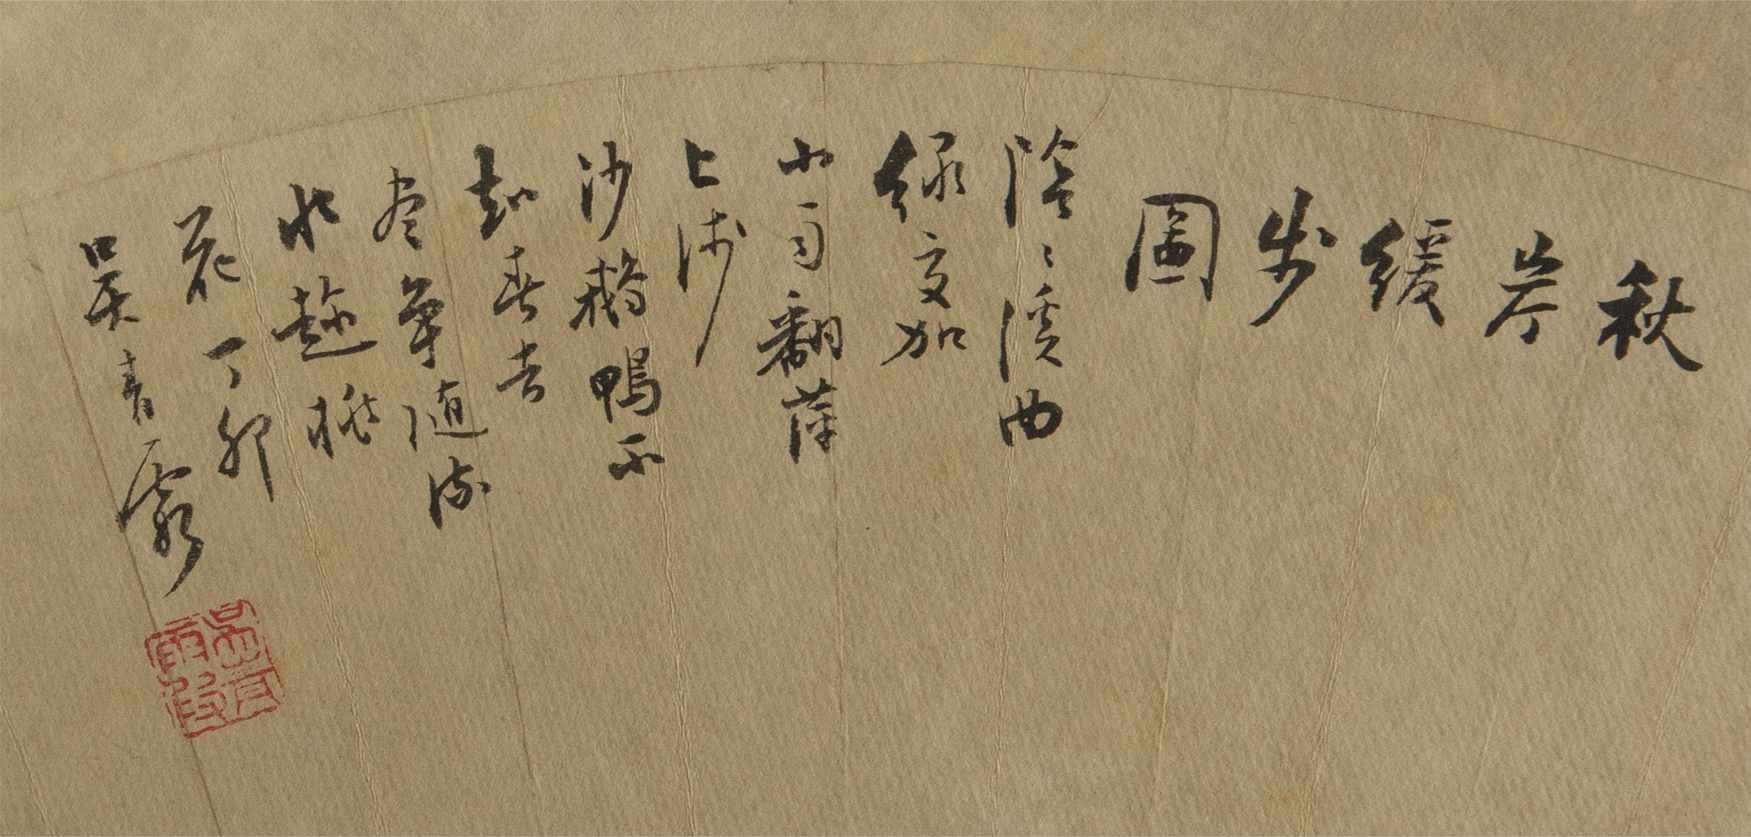 秋岸緩步圖
陰〻溪曲
綠交加
小雨翻萍
上淺
沙鵝鴨不
知春去
盡爭隨流
水趁桃
花 丁卯
吳青霞
吳青霞